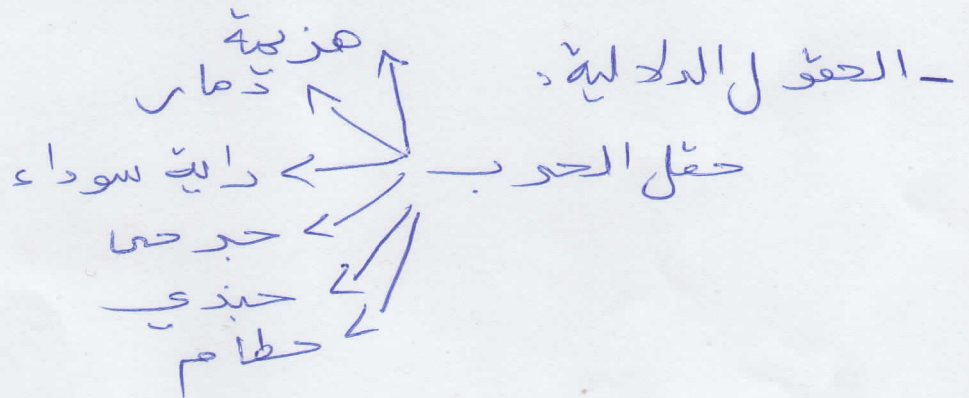 - الحقول الدلالية:
حقل الحرب
هزيمة
دمار
راية سوداء
جرحى
جندي
حطام